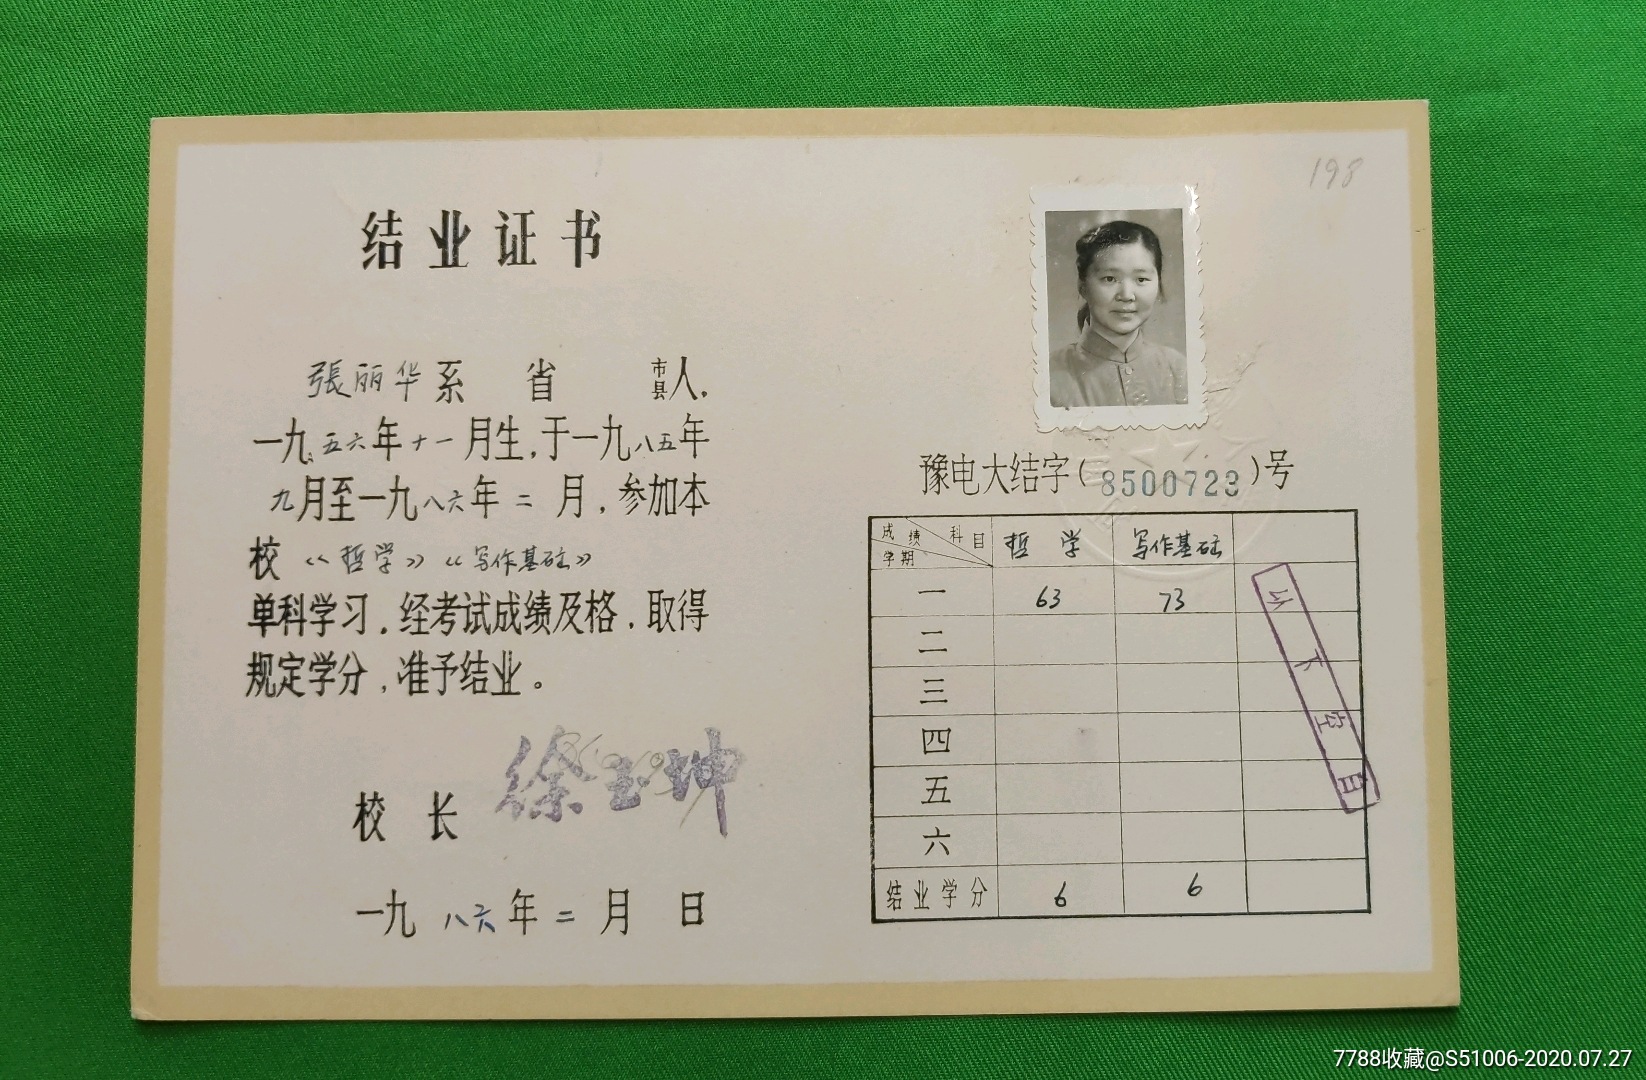 198
结业证书
張丽华系 省 市县人,
一九五六年十一月生,于一九八五年
九月至一九八六年二月,参加本
校《哲学》《写作基础》
单科学习,经考试成绩及格,取得
规定学分,准予结业。
校长 徐玉坤
一九八六年二月 日
豫电大结字(8500723)号
成绩 科目 学期 哲学 写作基础
一 63 73
二
三
四
五
六
结业学分 6 6
以下空白
7788收藏@S51006-2020.07.27